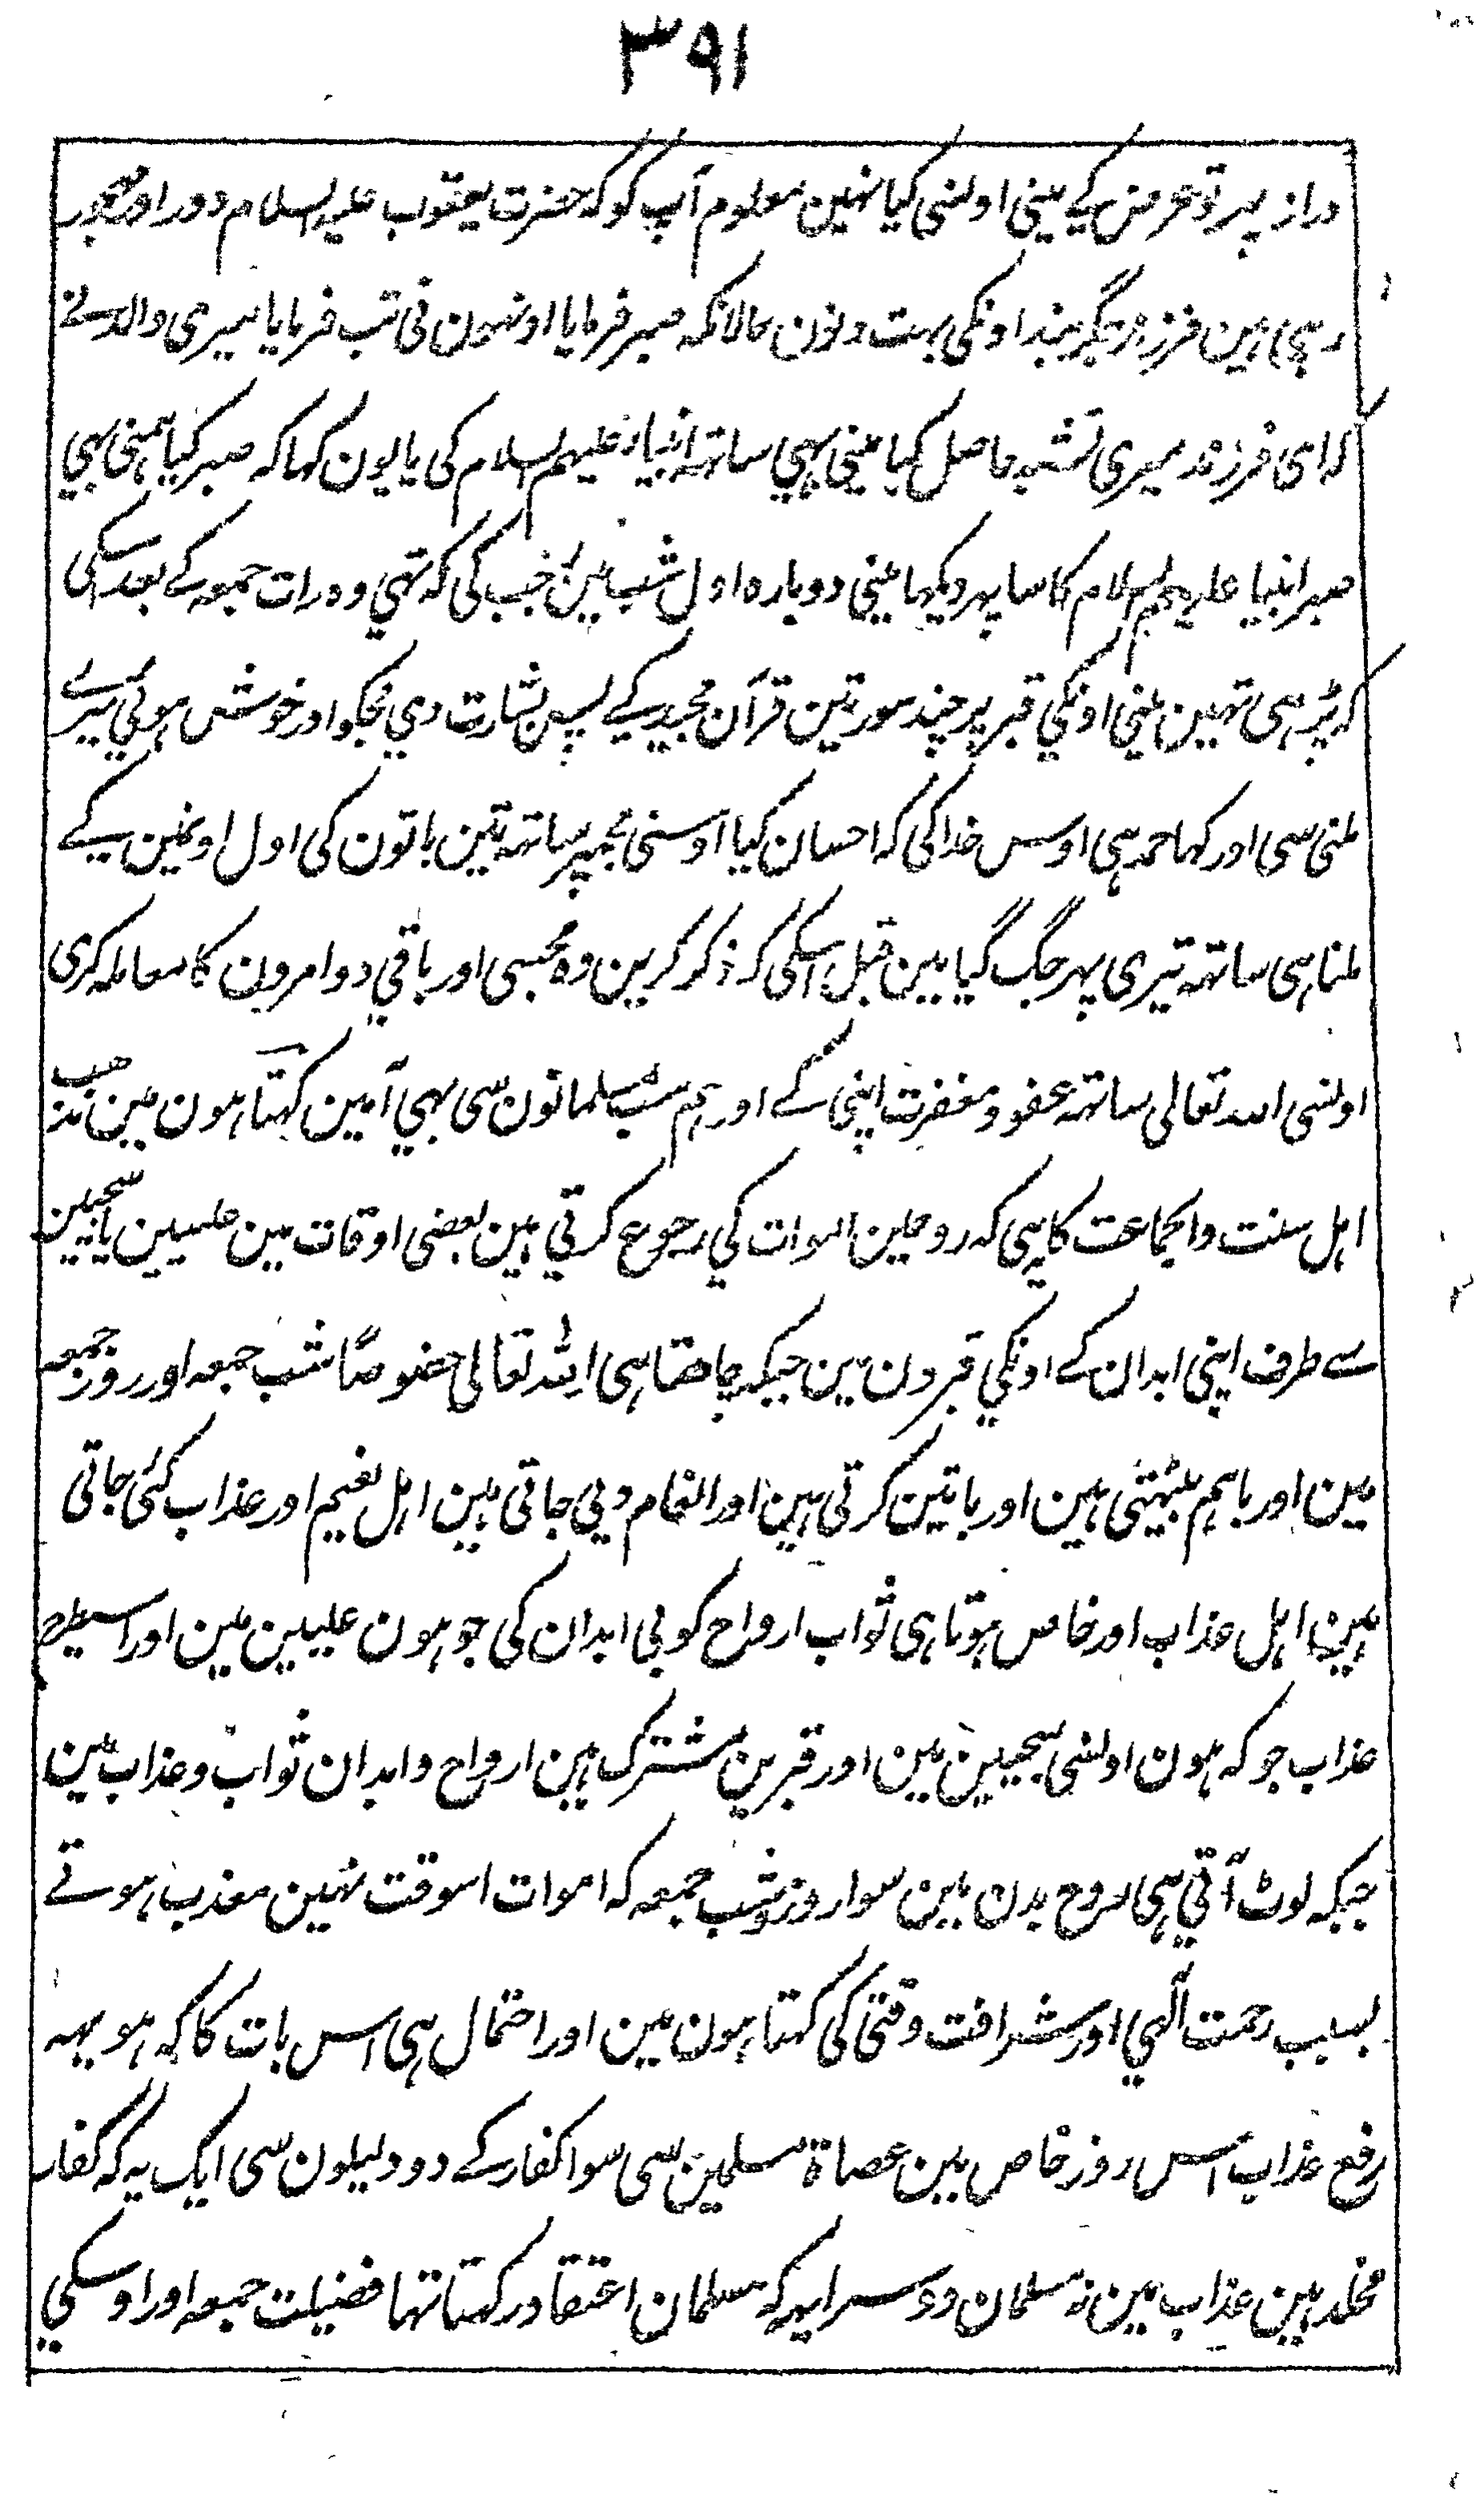 ۳۹۱
دراز پہر تو عرض کیے مینی اونسی کیا نہین معلوم آپ کو کہ حضرت یعقوب علیہ السلام دور اور مہجور
رہی ہین فرزند جگربند اونکی بہت دنون حالانکہ صبر فرمایا اونہون نی تب فرمایا میری والد نے
کہ ای فرزند میری تشبہ حاصل کیا مینی بہی ساتہ انبیاء علیہم السلام کی یا یون کہا کہ صبر کیا ہمنی بہی
صبر انبیا علیہم السلام کا سا پہر دیکہا مینی دوبارہ اول شب مین رجب کی کہ تہی وہ رات جمعہ کے بعد اسکی
کہ پڑہی تہین مینی اونکی قبر پر چند سورتین قرآن مجید کے پس بشارت دی مجکو اور خوش ہوئی میرے
ملنی سی اور کہا حمد ہی اوس خدا کی کہ احسان کیا اوسنی مجہپر ساتہ تین باتون کی اول اونمین کے
ملنا ہی ساتہ تیری پہر جگ گیا مین قبل اسکی کہ ذکر کرین وہ مجہسی اور باقی دو امرون کا معاملہ کری
اونسی اللہ تعالی ساتہ عفو و مغفرت اپنی کے اور ہم سب مسلمانون سی بہی آمین کہتا ہون مین مذہب
اہل سنت والجماعت کا یہی کہ روحین اموات کی رجوع کرتی ہین بعضی اوقات مین علیین یا سجین
سے طرف اپنی ابدان کے اونکی قبرون مین جبکہ چاہتا ہی اللہ تعالی خصوصاً شب جمعہ اور روز جمعہ
مین اور باہم بیٹہتی ہین اور باتین کرتی ہین اور انعام دیی جاتی ہین اہل نعیم اور عذاب کئی جاتی
ہین اہل عذاب اور خاص ہوتا ہی ثواب ارواح کو بی ابدان کی جو ہون علیین مین اور اسیطرح
عذاب جو کہ ہون اونسی سجین مین اور قبر مین مشترک ہین ارواح و ابدان ثواب و عذاب مین
جبکہ لوٹ آتی ہی روح بدن مین سوا روز و شب جمعہ کہ اموات اسوقت نہین معذب ہوتے
بسبب رحمت الٰہی اور شرافت وقتی کی کہتا ہون مین اور احتمال ہی اس بات کا کہ ہو یہہ
رفع عذاب اس روز خاص مین عصاۃ مسلمین سی سوا کفار کے دو دلیلون سی ایک یہ کہ کفار
مخلد ہین عذاب مین نہ مسلمان دوسرا یہ کہ مسلمان اعتقاد رکہتا تہا فضیلت جمعہ اور اوسکی